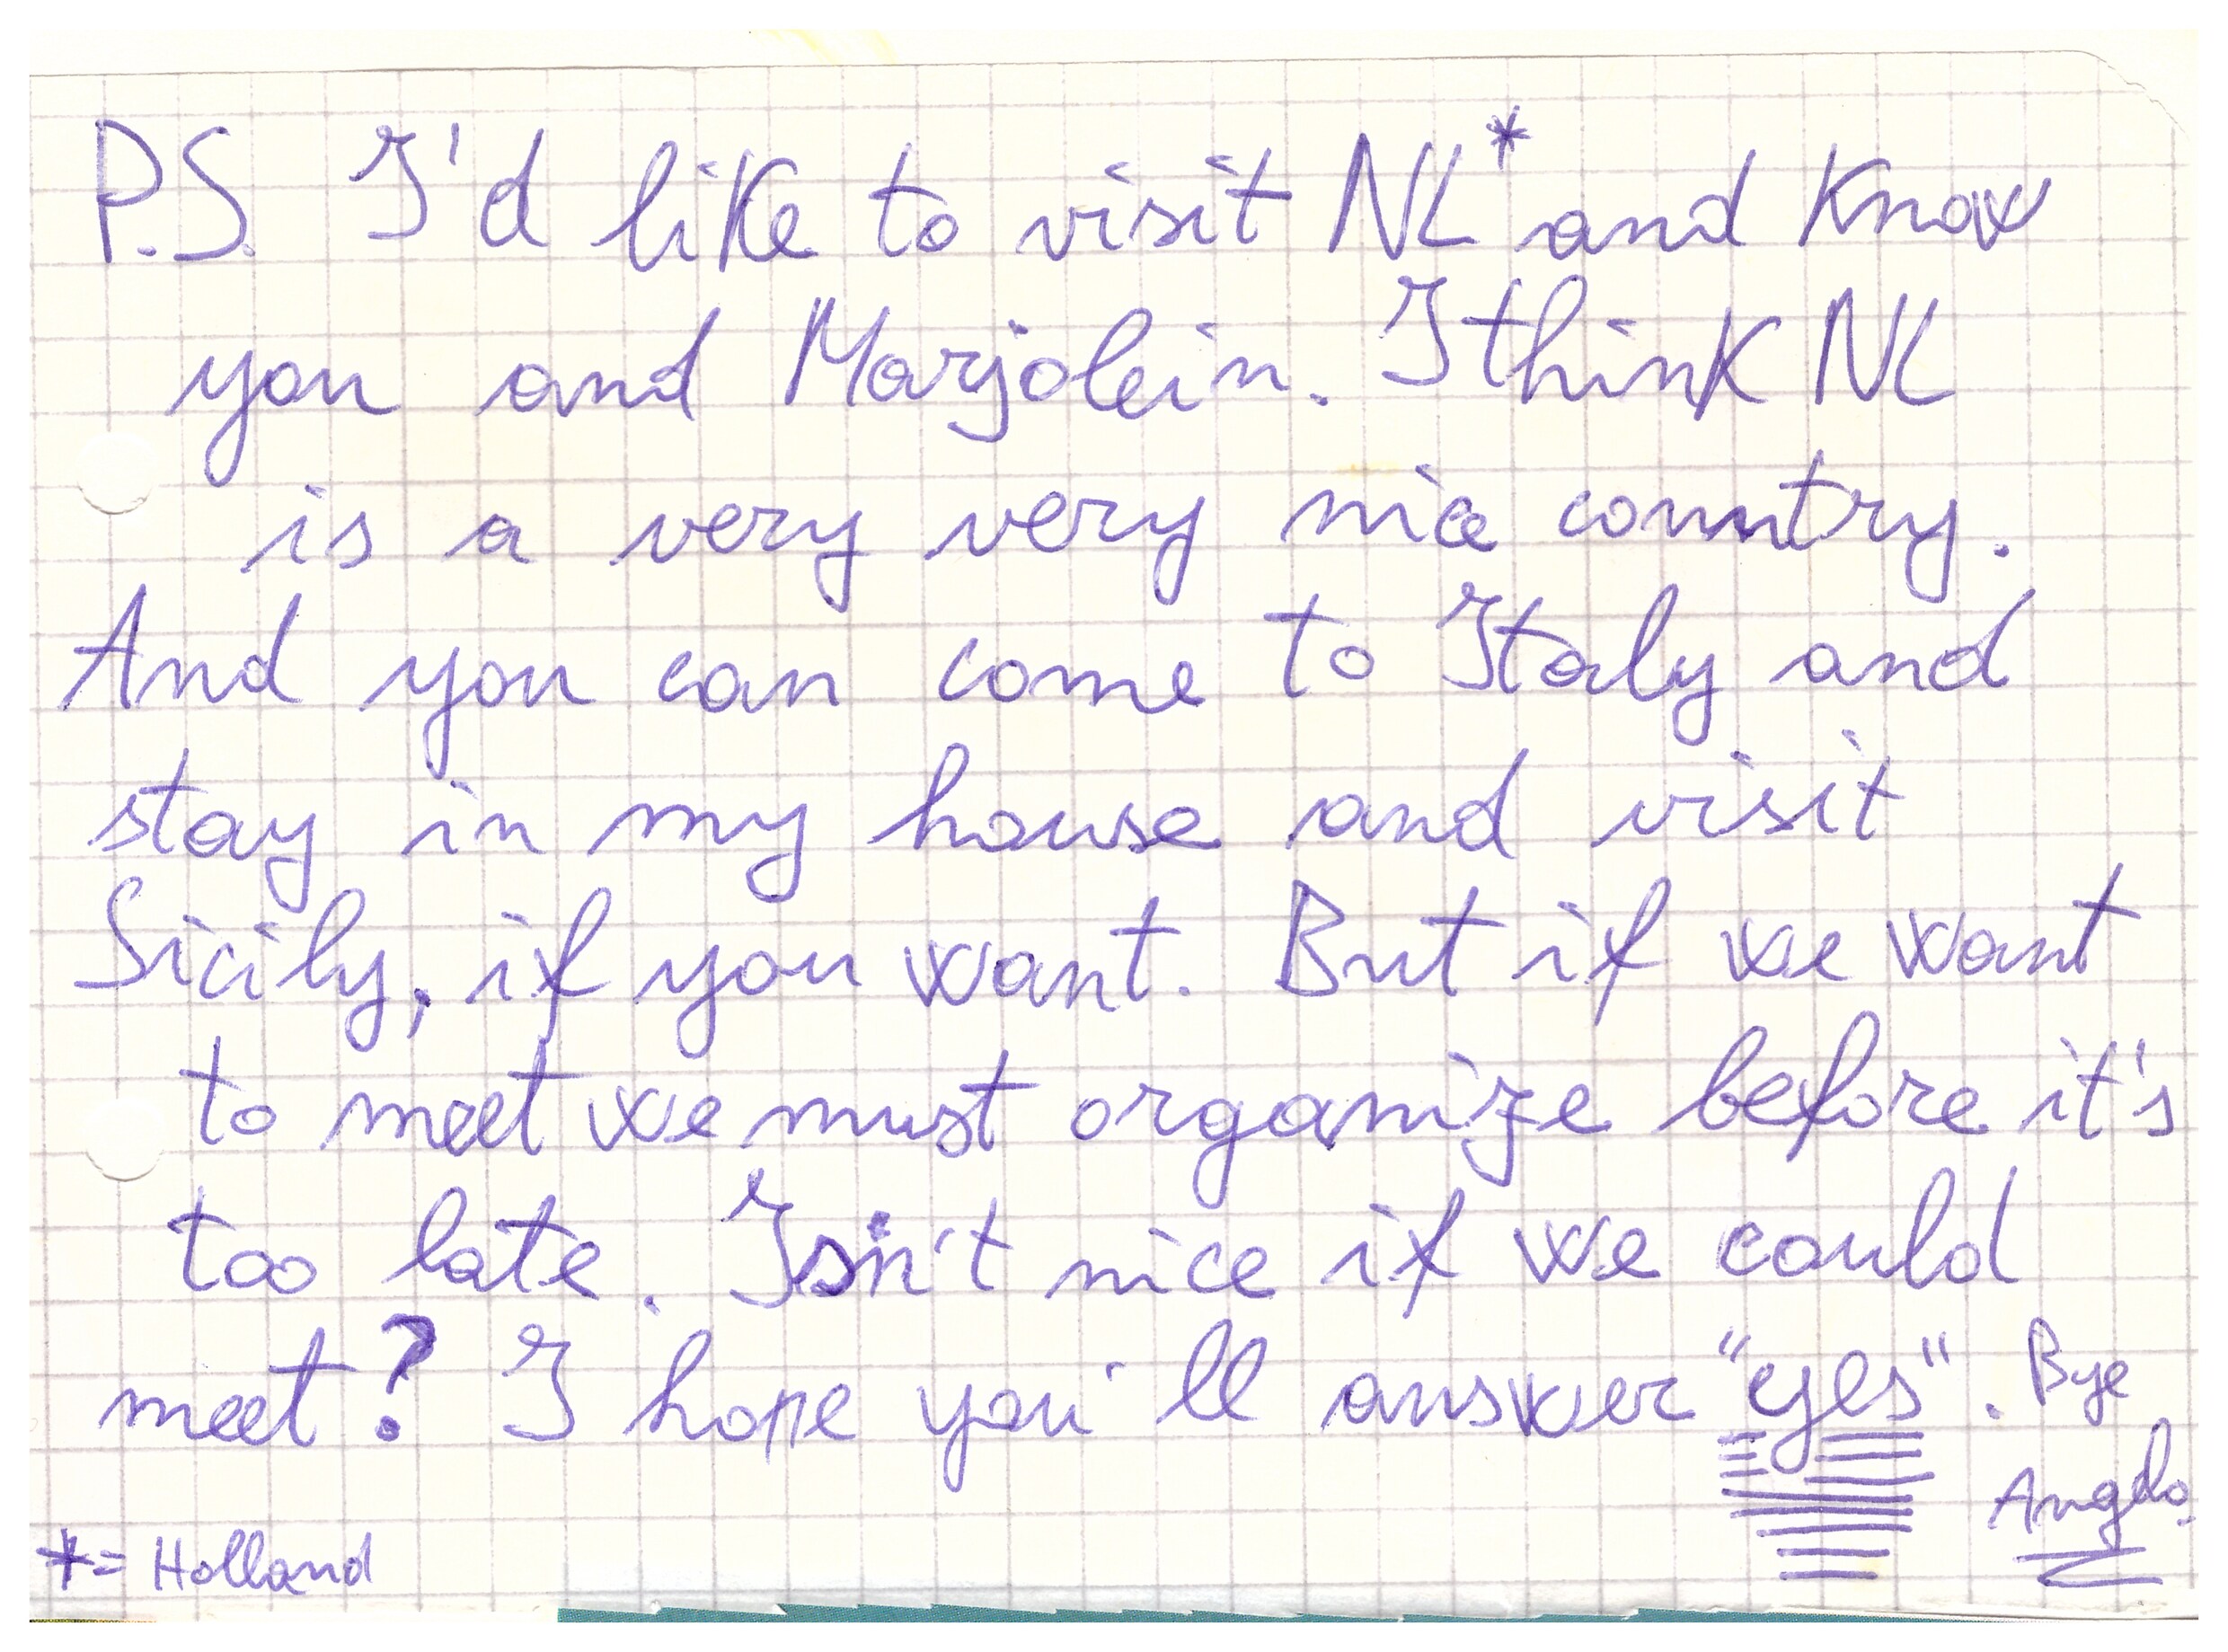 P.S. I'd like to visit NL* and know
you and Marjolein. I think NL
is a very very nice country.
And you can come to Italy and
stay in my house and visit
Sicily, if you want. But if we want
to meet we must organize before it's
too late. Isn't nice if we could
meet? I hope you'll answer "yes". Bye
Angelo.
*= Holland